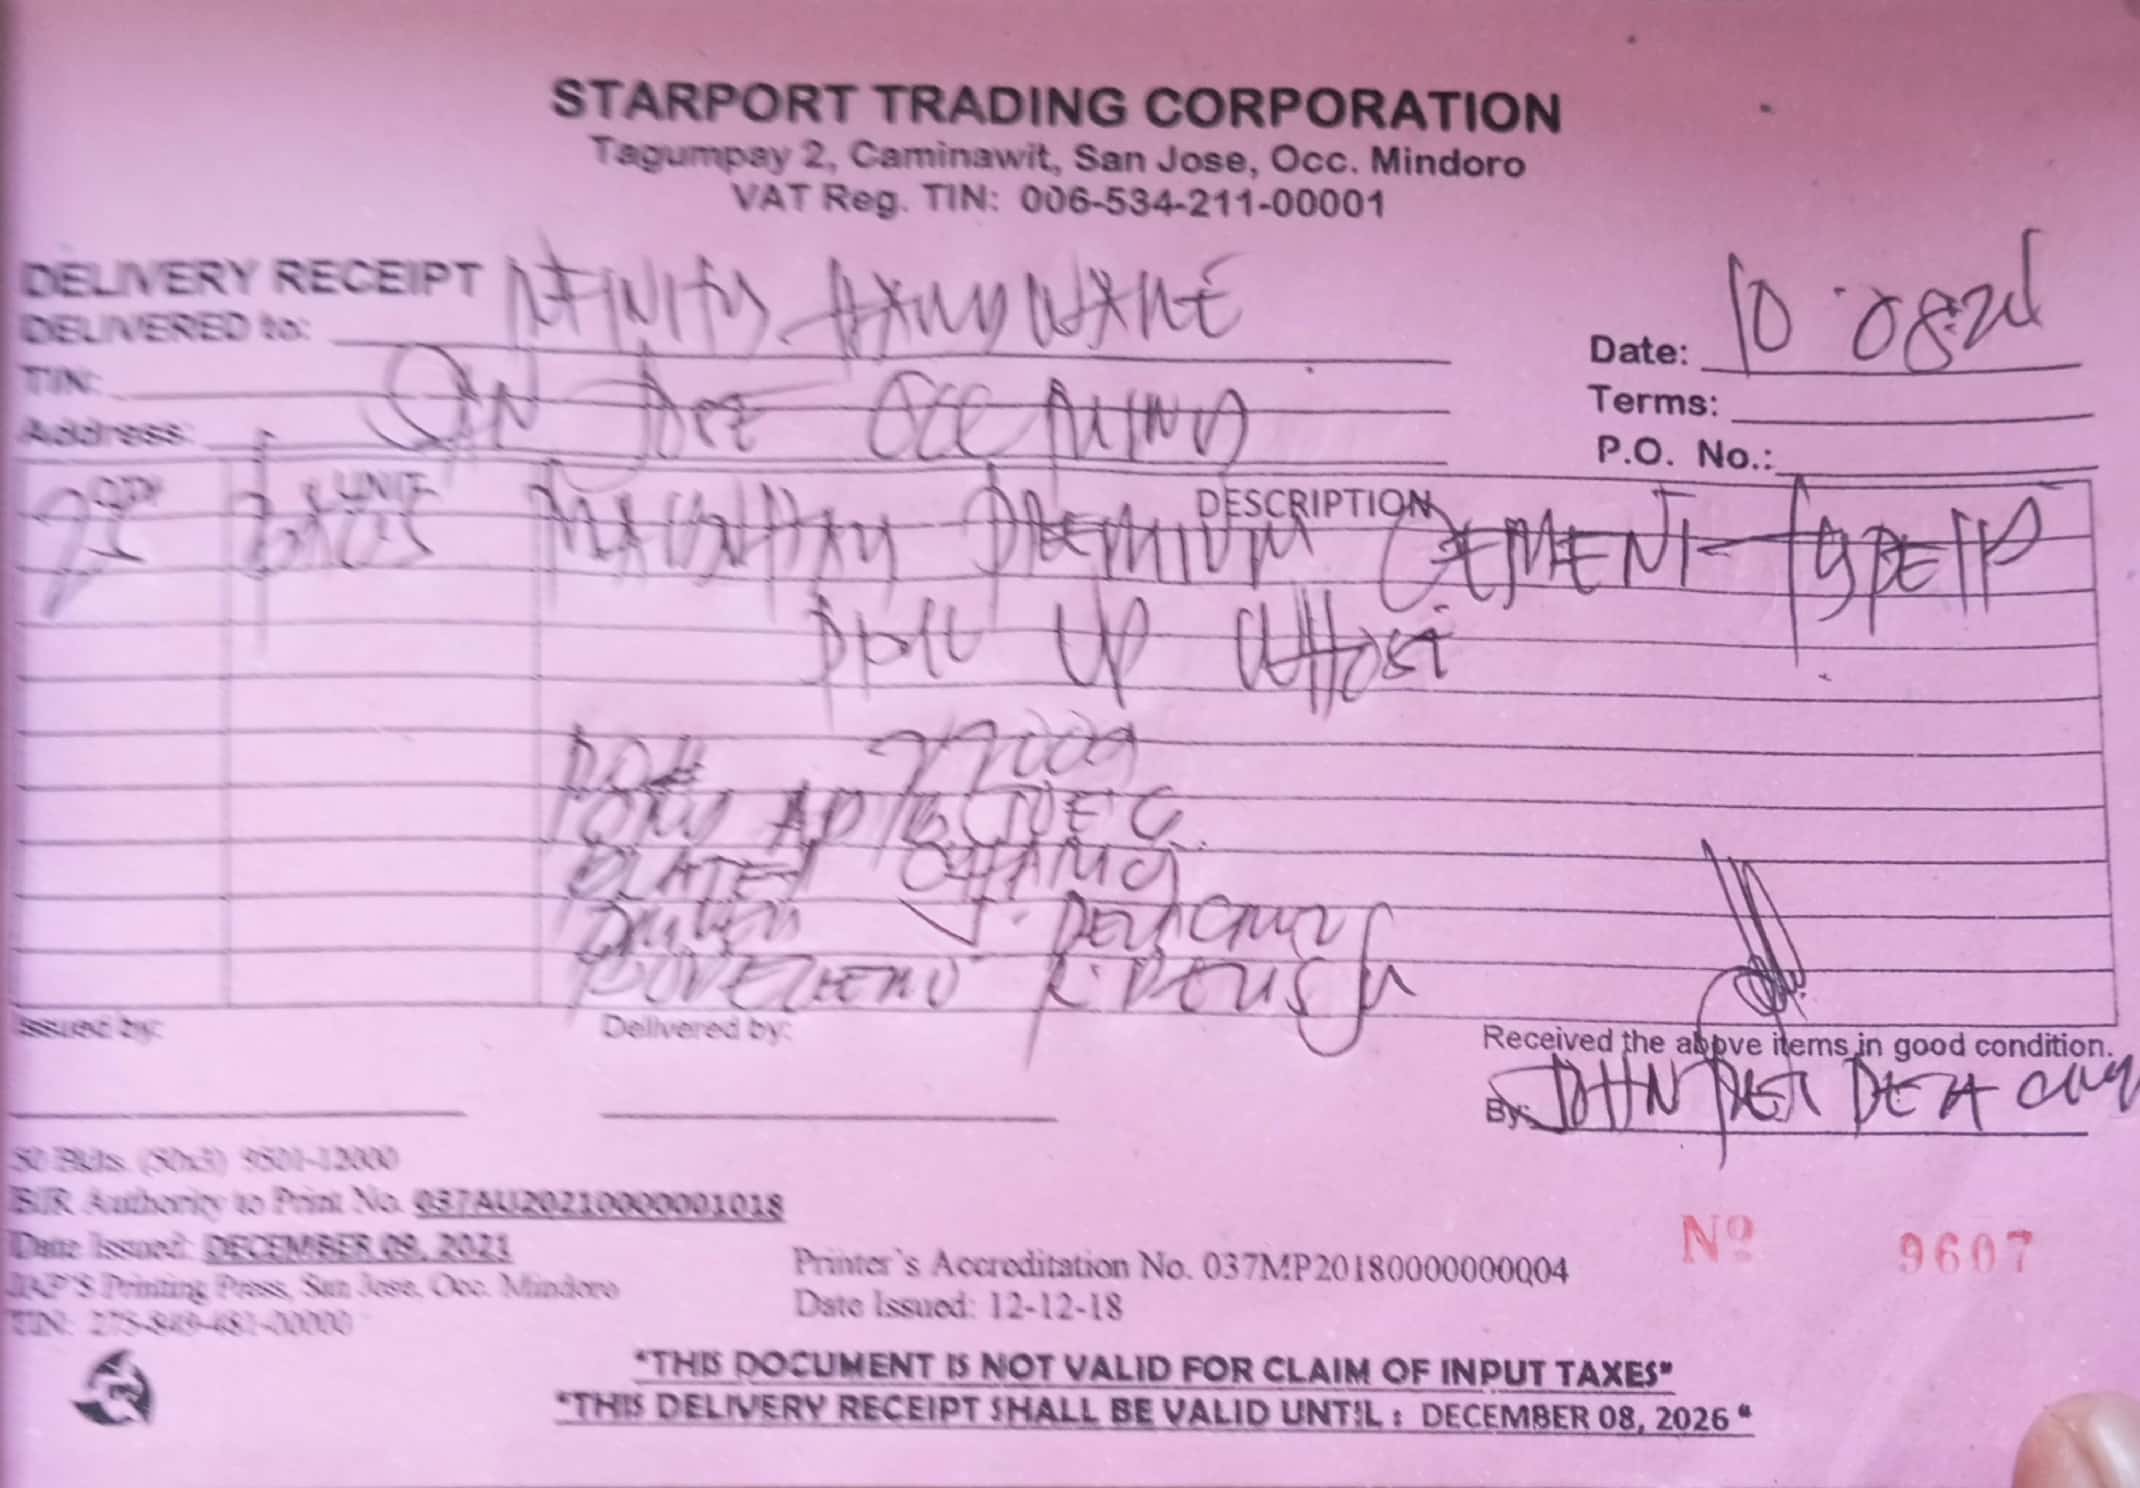 STARPORT TRADING CORPORATION
Tagumpay 2, Caminawit, San Jose, Occ. Mindoro
VAT Reg. TIN: 006-534-211-00001
DELIVERY RECEIPT
DELIVERED to: HARDWARE
Date: 10-08-24
TIN:
Terms:
Address: SAN JOSE OCC MINDO
P.O. No.:
QTY UNIT DESCRIPTION
25 BAGS PREMIUM CEMENT-TYPE 1P
PICK UP
22009
PLATE#
DRIVER J. DELACRUZ
Issued by:
Delivered by:
Received the above items in good condition.
By: JOHN DELA CRUZ
50 Bklts. (50x3) 9501-12000
BIR Authority to Print No. 037AU20210000001018
Date Issued: DECEMBER 09, 2021
JAP'S Printing Press, San Jose, Occ. Mindoro
TIN: 275-849-481-00000
Printer's Accreditation No. 037MP20180000000004
Date Issued: 12-12-18
Nº 9607
"THIS DOCUMENT IS NOT VALID FOR CLAIM OF INPUT TAXES"
"THIS DELIVERY RECEIPT SHALL BE VALID UNTIL : DECEMBER 08, 2026"